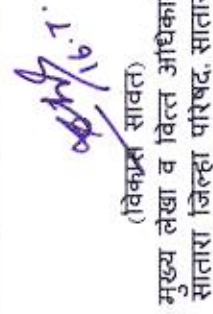 16.7.
(विकास सावंत)
मुख्य लेखा व वित्त अधिका
सातारा जिल्हा परिषद, सातार